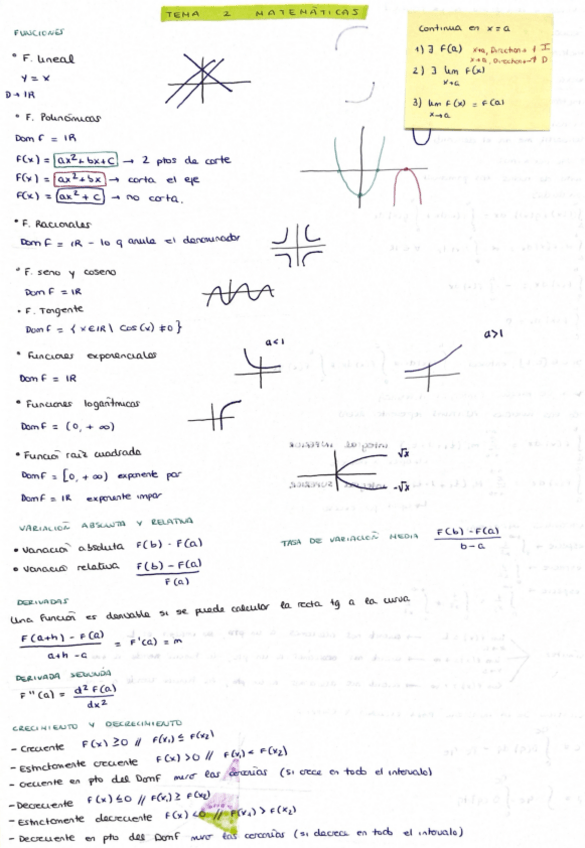 TEMA 2 MATEMÁTICAS
FUNCIONES
Continua en x=a
1) ∃ F(a)
2) ∃ lim F(x)
x→a
3) lim F(x) = F(a)
x→a
• F. lineal
y = x
D → IR
• F. Polinómicas
Dom F = IR
F(x) = ax²+bx+c → 2 ptos de corte
F(x) = ax²+bx → corta el eje
F(x) = ax²+c → no corta.
• F. Racionales
Dom F = IR - lo q anula el denominador
• F. seno y coseno
Dom F = IR
• F. Tangente
Dom F = {x∈IR \ cos(x) ≠0}
• Funciones exponenciales
a<1
a>1
Dom F = IR
• Funciones logarítmicas
Dom F = (0, +∞)
• Función raíz cuadrada
√x
-√x
Dom F = [0, +∞) exponente par
Dom F = IR exponente impar
VARIACIÓN ABSOLUTA Y RELATIVA
• Variación absoluta F(b) - F(a)
• Variación relativa F(b) - F(a)
F(a)
TASA DE VARIACIÓN MEDIA F(b) - F(a)
b - a
DERIVADAS
Una función es derivable si se puede calcular la recta tg a la curva
F(a+h) - F(a) = F'(a) = m
a+h - a
DERIVADA SEGUNDA
F''(a) = d² F(a)
dx²
CRECIMIENTO Y DECRECIMIENTO
- Creciente F(x) ≥0 // F(x₁) ≤ F(x₂)
- Estrictamente creciente F(x) >0 // F(x₁) < F(x₂)
- Creciente en pto del DomF miro las cercanías (si crece en todo el intervalo)
- Decreciente F(x) ≤0 // F(x₁) ≥ F(x₂)
- Estrictamente decreciente F(x) <0 // F(x₁) > F(x₂)
- Decreciente en pto del DomF miro las cercanías (si decrece en todo el intervalo)